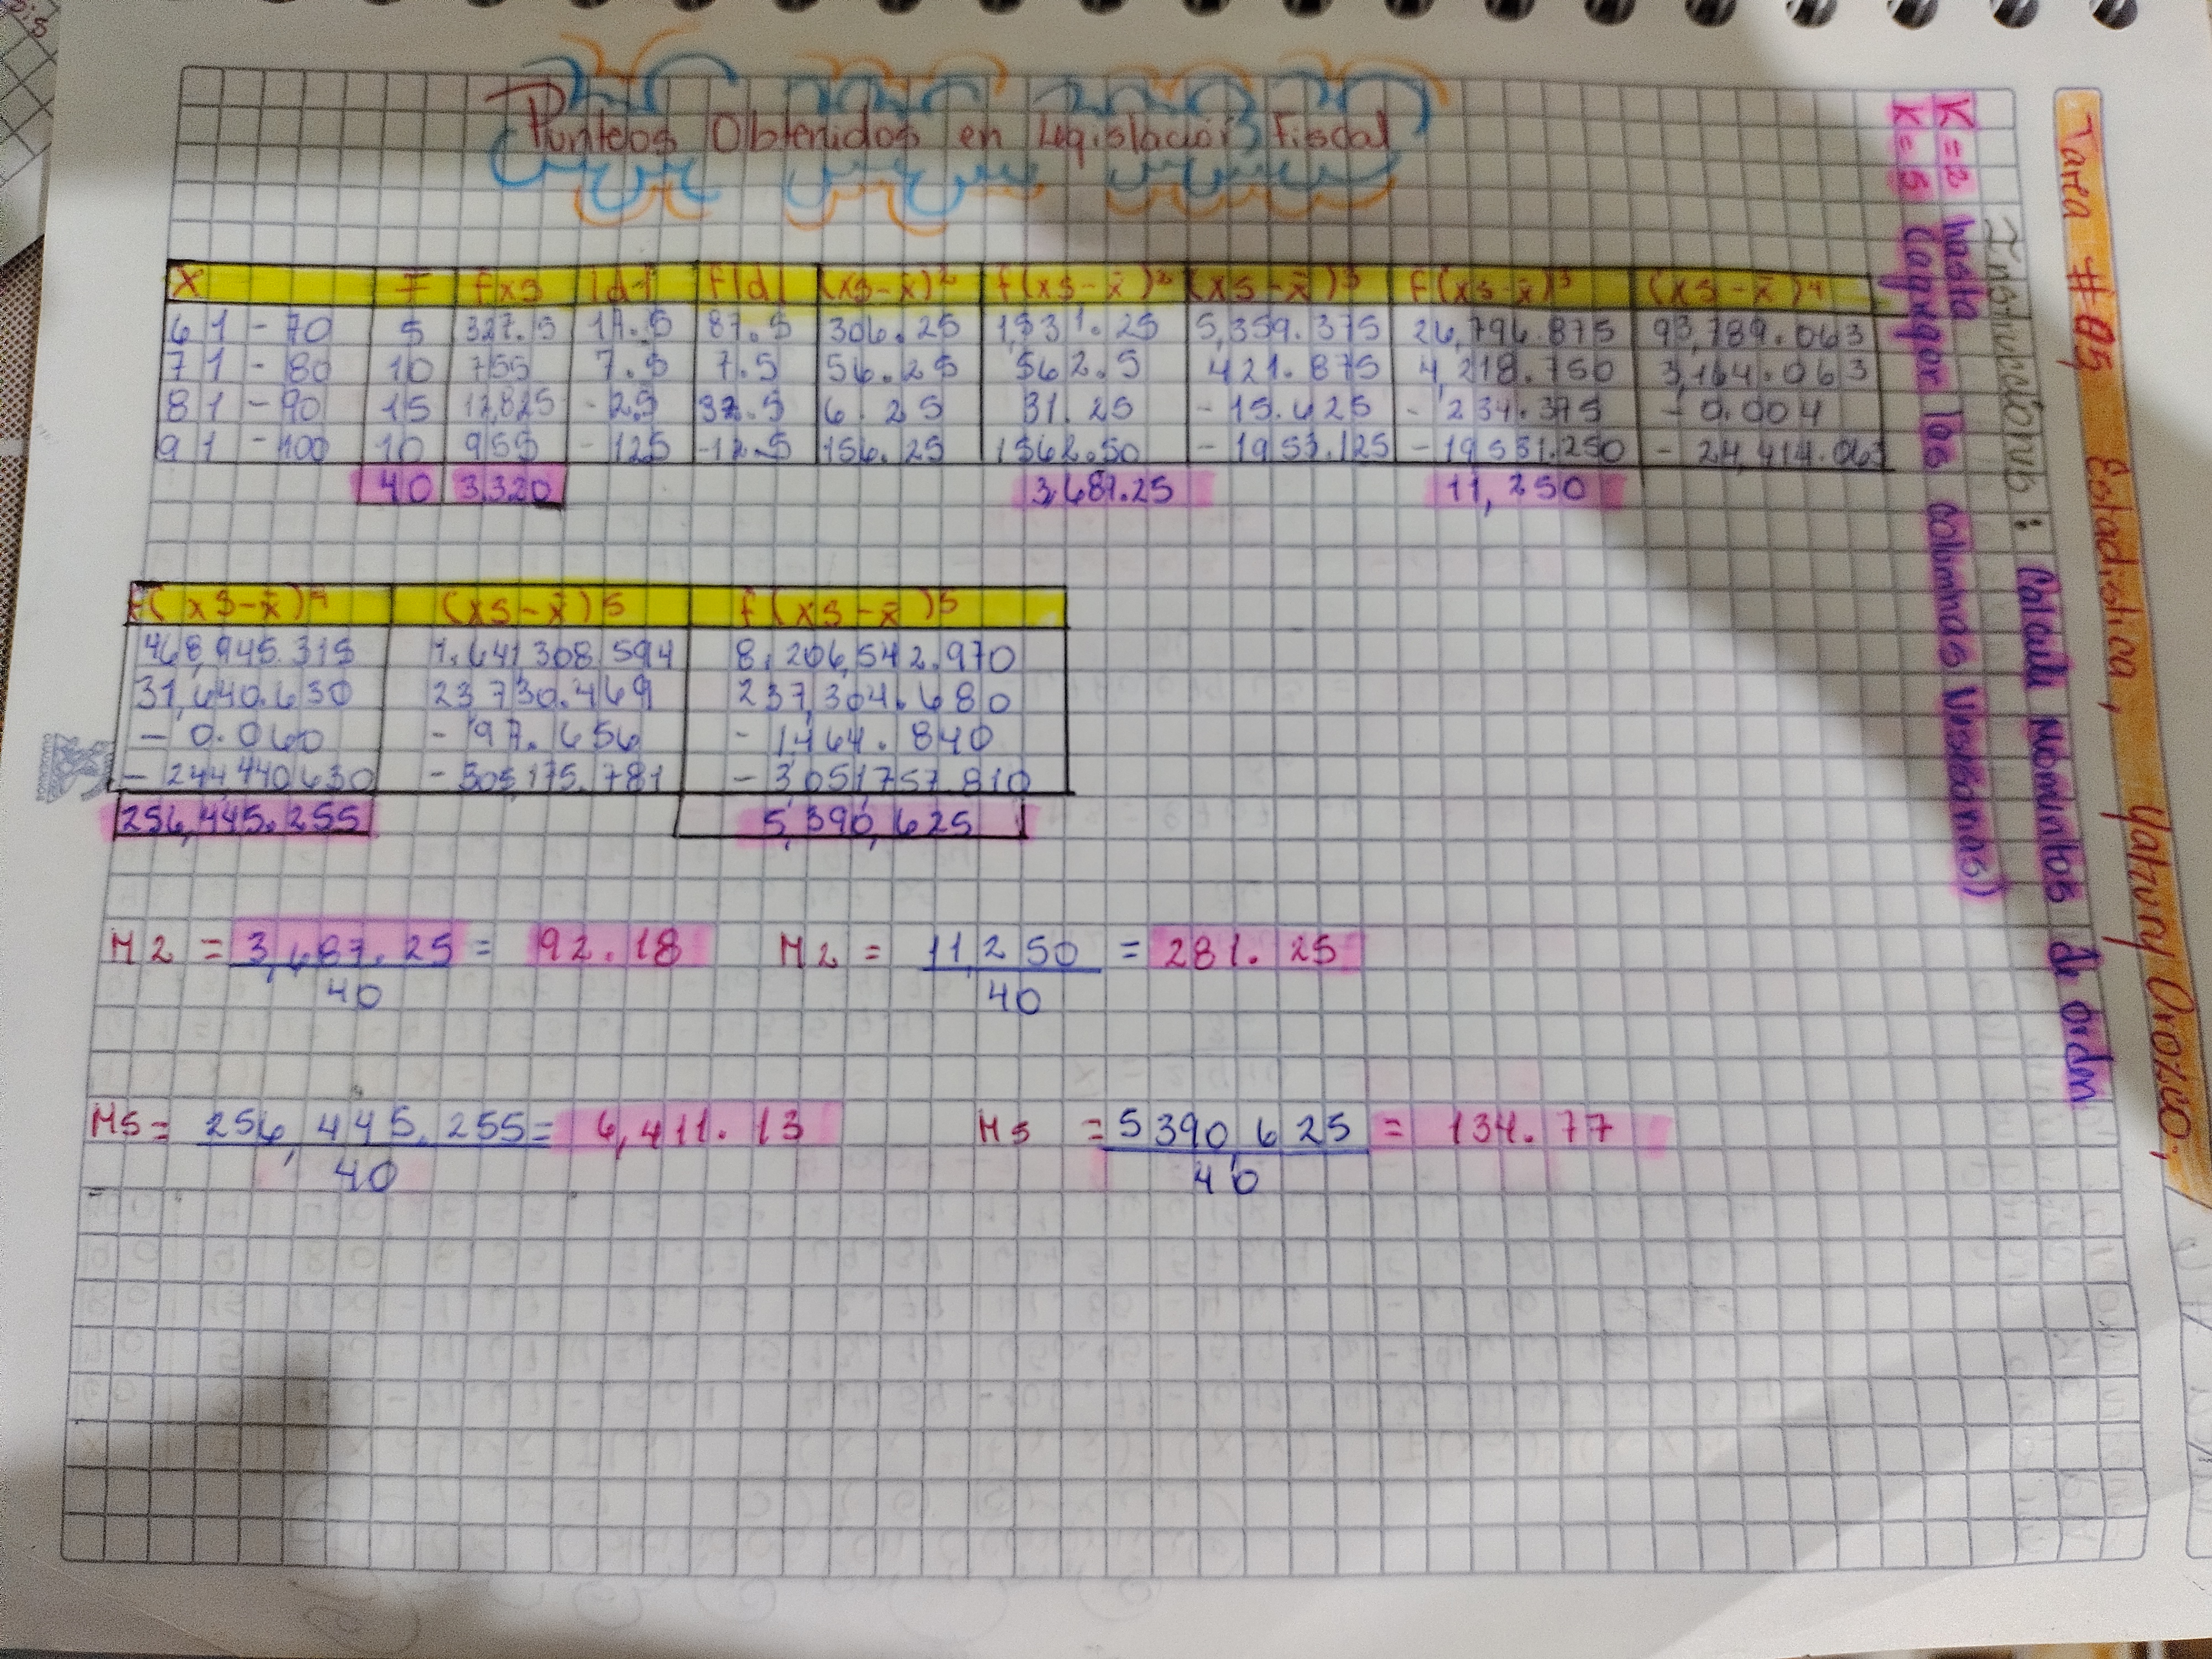 Tarea #05 Estadística, Yatnury Orozco;
Instrucciones: Calcule Momentos de orden
K=2 hasta
K=5 (agregar las columnas necesarias)
Punteos Obtenidos en Legislación Fiscal
X F fxs |d| f|d| (xs-x̄)² f(xs-x̄)² (xs-x̄)³ f(xs-x̄)³ (xs-x̄)⁴
61-70 5 327.5 17.5 87.5 306.25 1,531.25 5,359.375 26,796.875 93,789.063
71-80 10 755 7.5 7.5 56.25 562.5 421.875 4,218.750 3,164.063
81-90 15 12,825 -2.5 37.5 6.25 31.25 -15.625 -234.375 -0.004
91-100 10 955 -125 -12.5 156.25 1562.50 -1953.125 -19531.250 -24,414.063
40 3320 3,687.25 11,250
f(xs-x̄)⁴ (xs-x̄)5 f(xs-x̄)5
468,945.315 1.641,308,594 8,206,542.970
31,640.630 23,730.469 237,304.680
-0.060 -97.656 -1,464.840
-244,440,630 -305,175.781 -3,051,757.810
256,445.255 5,390,625
M2 = 3,687.25 = 92.18 M2 = 11,250 = 281.25
40 40
M5= 256,445.255= 6,411.13 M5 = 5390,625 = 134.77
40 40